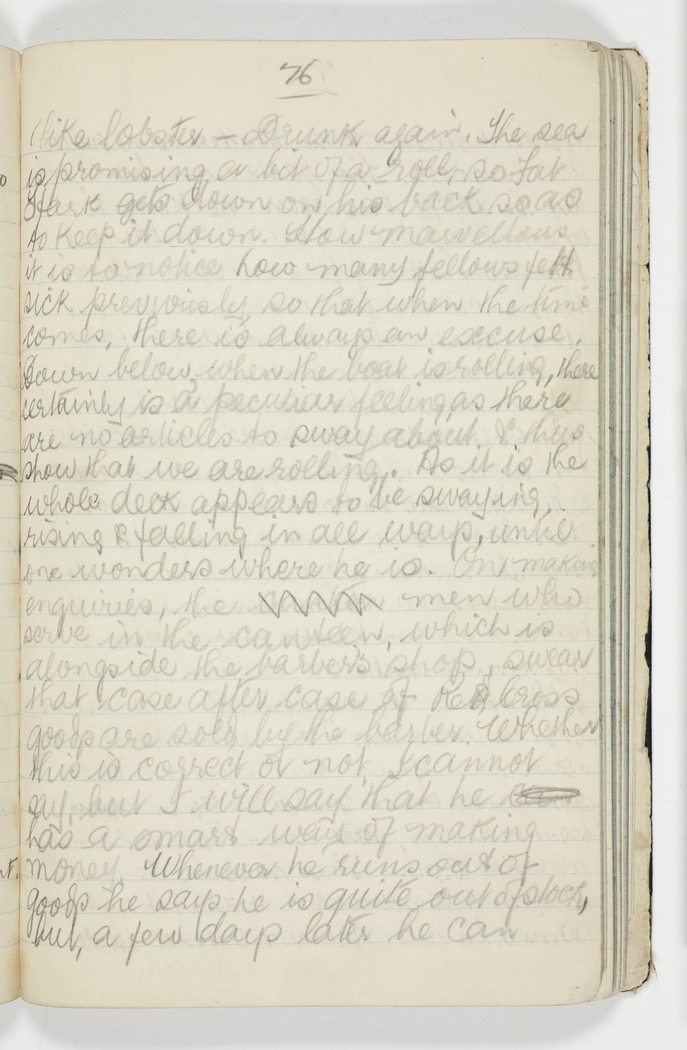 76
(like lobster – Drunk again. The sea
is promising a bit of a roll, so Fat
Stark gets down on his back so as
to keep it down. How marvellous
it is to notice how many fellows felt
sick previously so that when the time
comes, there is always an excuse.
Down below, when the boat is rolling, there
certainly is a peculiar feeling as there
are no articles to sway about, & thus
show that we are rolling. As it is the
whole deck appears to be swaying,
rising & falling in all ways, until
one wonders where he is. On making
enquiries, the men who
serve in the canteen, which is
alongside the barber's shop, swear
that case after case of Red Cross
goods are sold by the barber. Whether
this is correct or not, I cannot
say, but I will say that he
has a smart way of making
money. Whenever he runs out of
goods he says he is quite out of stock,
but, a few days later he can